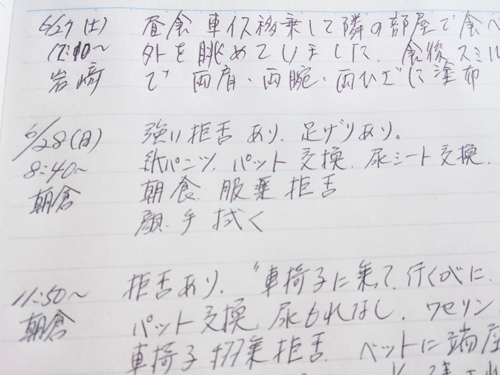 6/27(土) 昼食 車イス移乗して隣の部屋で食べ
12:10〜 外を眺めていました。食後スミル
岩﨑 で 両肩・両腕・両ひざに塗布
6/28(日) 強い拒否 あり、足げりあり。
8:40〜 紙パンツ、パット 交換、尿シート交換、
朝倉 朝食、服薬 拒否
顔、手 拭く
11:50〜 拒否あり、〝車椅子に乗て、行くのに、
朝倉 パット 交換 尿もれなし、ワセリン、
車椅子 移乗 拒否、ベットに端座